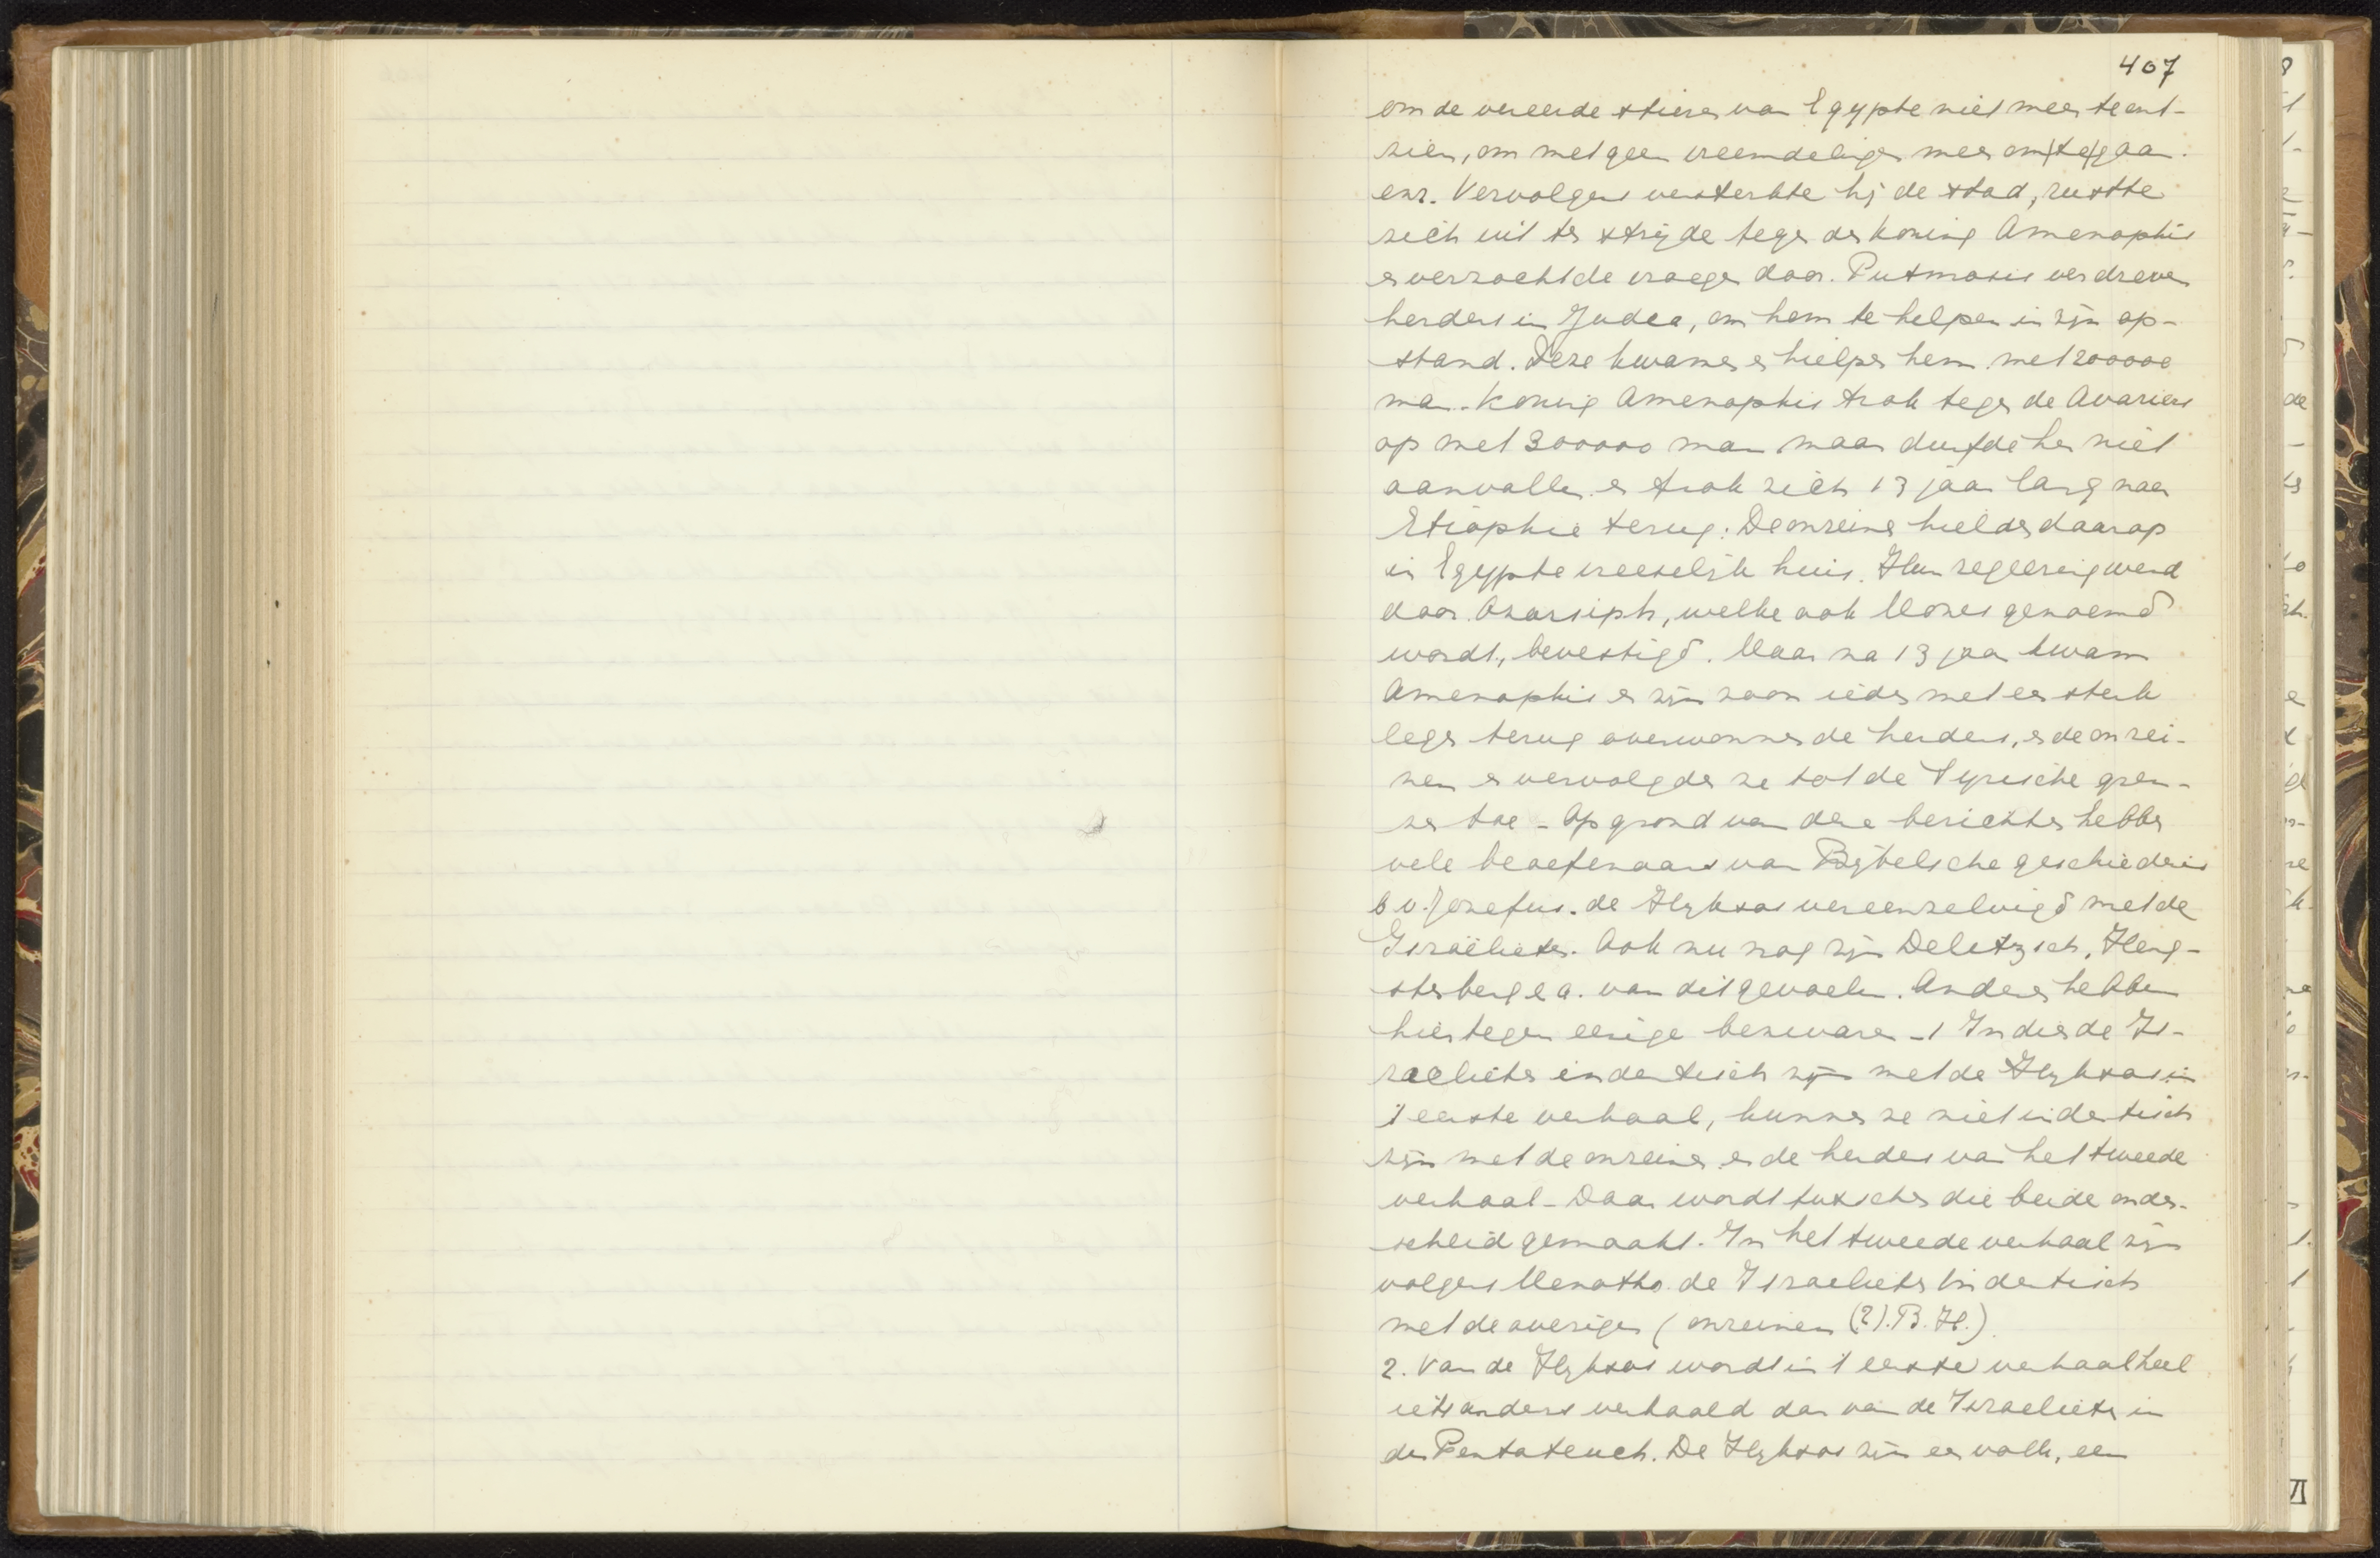 407
om de vereerde stieren van Egypte niet meer te ont-
zien, om met geen vreemdelingen meer om te gaan
enz. Vervolgens versterkte hij de stad, rustte
zich uit ten strijde tegen den koning Amenophis
en verzocht de vroeger door Putmosis verdreven
herders in Judea, om hem te helpen in zijn op-
stand. Deze kwamen en hielpen hem met 200000
man. Koning Amenophis trok tegen de Avariers
op met 300000 man maar durfde hen niet
aanvallen en trok zich 13 jaar lang naar
Etiophie terug. De onreinen hielden daarop
in Egypte vreeselijk huis. Hun regeering werd
door Osarsiph, welke ook Mozes genoemd
wordt, bevestigd. Maar na 13 jaar kwam
Amenophis en zijn zoon ieder met een sterk
leger terug overwonnen de herders, en de onrei-
nen en vervolgden ze tot de Syrische gren-
zen toe - Op grond van deze berichten hebben
vele beoefenaars van Bijbelsche geschiedenis
b v. Jozefus. de Hyksos vereenzelvigd met de
Israëlieten. Ook nu nog zijn Delitzsch, Heng-
stenberg e a. van dit gevoelen. Anderen hebben
hiertegen eenige bezwaren - 1 Indien de Is-
raelieten indentisch zijn met de Hyksos in
't eerste verhaal, kunnen ze niet indentisch
zijn met de onreinen en de herders van het tweede
verhaal - Daar wordt tusschen die beide onder-
scheid gemaakt. In het tweede verhaal zijn
volgens Menotho de Israelieten indentisch
met de overigen (onreinen (?). B. H.)
2. Van de Hyksos wordt in 't eerste verhaal heel
iets anders verhaald dan van de Israelieten in
den Pentateuch. De Hyksos zijn een volk, een